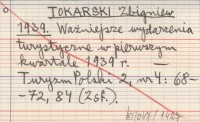 TOKARSKI Zbigniew
1939. Ważniejsze wydarzenia
turystyczne w pierwszym
kwartale 1939 r. —
Turyzm Polski 2, nr 4: 68-
-72, 84 (2 sf.).